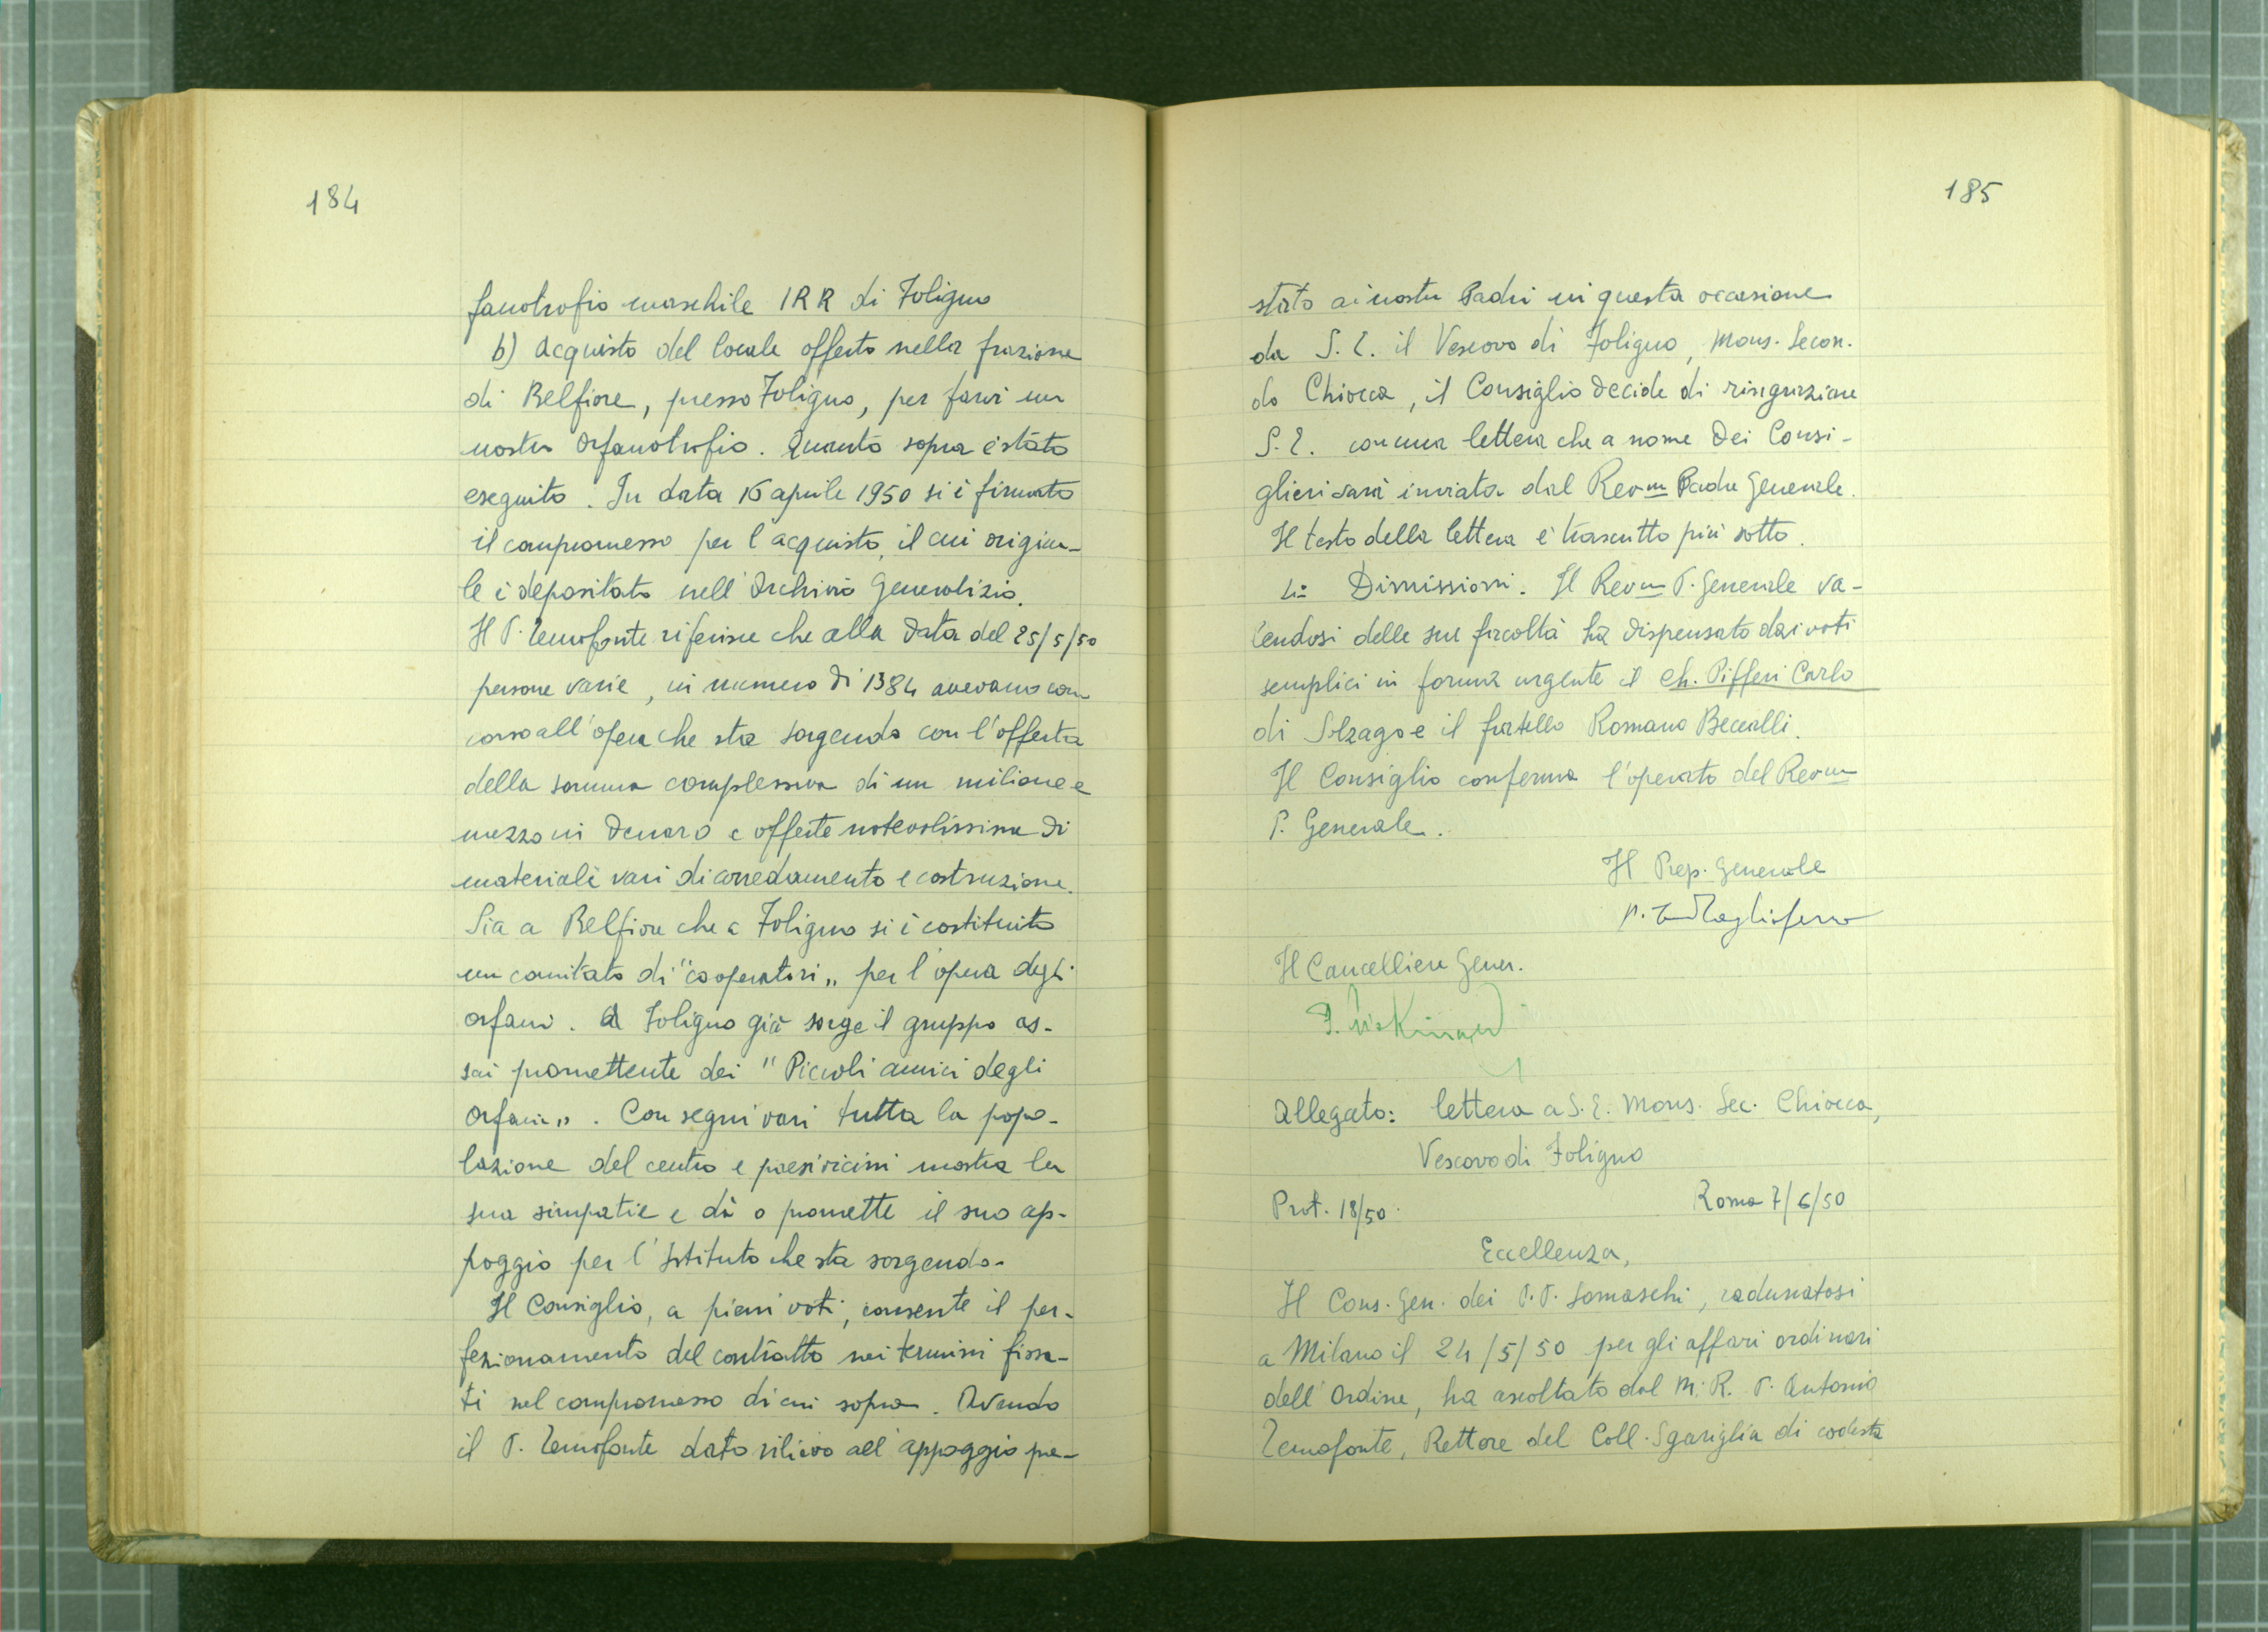 184
fanotrofio maschile IRR di Foligno
b) Acquisto del locale offerto nella frazione
di Belfiore, presso Foligno, per farvi un
nostro Orfanotrofio. Quanto sopra è stato
eseguito. In data 16 aprile 1950 si è firmato
il compromesso per l'acquisto, il cui origina-
le è depositato nell'Archivio Generalizio.
Il P. Temofonte riferisce che alla data del 25/5/50
persone varie, in numero di 1384 avevano con
corso all'opera che sta sorgendo con l'offerta
della somma complessiva di un milione e
mezzo in denaro e offerte notevolissime di
materiale vari di arredamento e costruzione.
Sia a Belfiore che a Foligno si è costituito
un comitato di "cooperatori" per l'opera degli
orfani. A Foligno già sorge il gruppo as-
sai promettente dei "Piccoli amici degli
Orfani". Con segni vari tutta la popo-
lazione del centro e paesi vicini mostra la
sua simpatie e dà o promette il suo ap-
poggio per l'Istituto che sta sorgendo.
Il Consiglio, a pieni voti, consente il per-
fezionamento del contratto nei termini fissa-
ti nel compromesso di cui sopra. Avendo
il P. Temofonte dato rilievo all'appoggio pre-
185
stato ai nostri Padri in questa occasione
da S. E. il Vescovo di Foligno, Mons. Secon-
do Chiocca, il Consiglio decide di ringraziare
S. E. con una lettera che a nome dei Consi-
glieri sarà inviata dal Revm Padre Generale.
Il testo della lettera è trascritto più sotto.
4: Dimissioni. Il Revm P. Generale va-
lendosi delle sue facoltà ha dispensato dai voti
semplici in forma urgente il Ch. Pifferi Carlo
di Solzago e il fratello Romano Beccalli.
Il Consiglio conferma l'operato del Revm
P. Generale.
Il Prep. Generale
Tagliaferro
Il Cancelliere Gener.
Allegato: lettera a S. E. Mons. Sec. Chiocca,
Vescovo di Foligno
Prot. 18/50. Roma 7/6/50
Eccellenza,
Il Cons. Gen. dei P.P. Somaschi, radunatosi
a Milano il 24/5/50 per gli affari ordinari
dell'Ordine, ha ascoltato dal M. R. P. Antonio
Temofonte, Rettore del Coll. Sgariglia di codesta